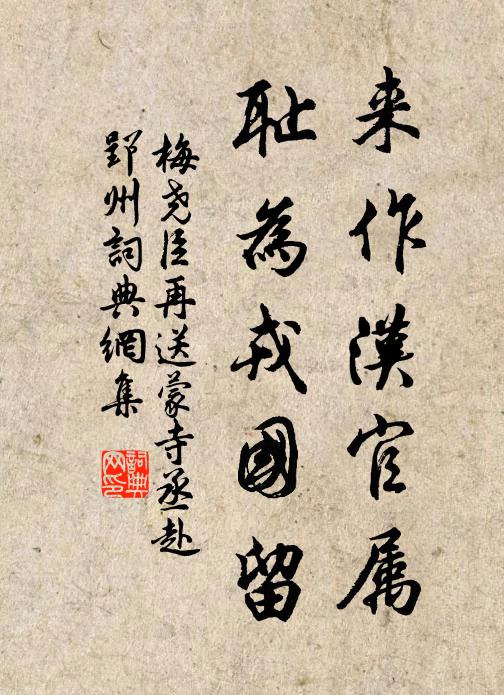 来作漢官属
耻為戎國留
梅尧臣再送蒙寺丞赴
郢州詞典網集
詞典
网印